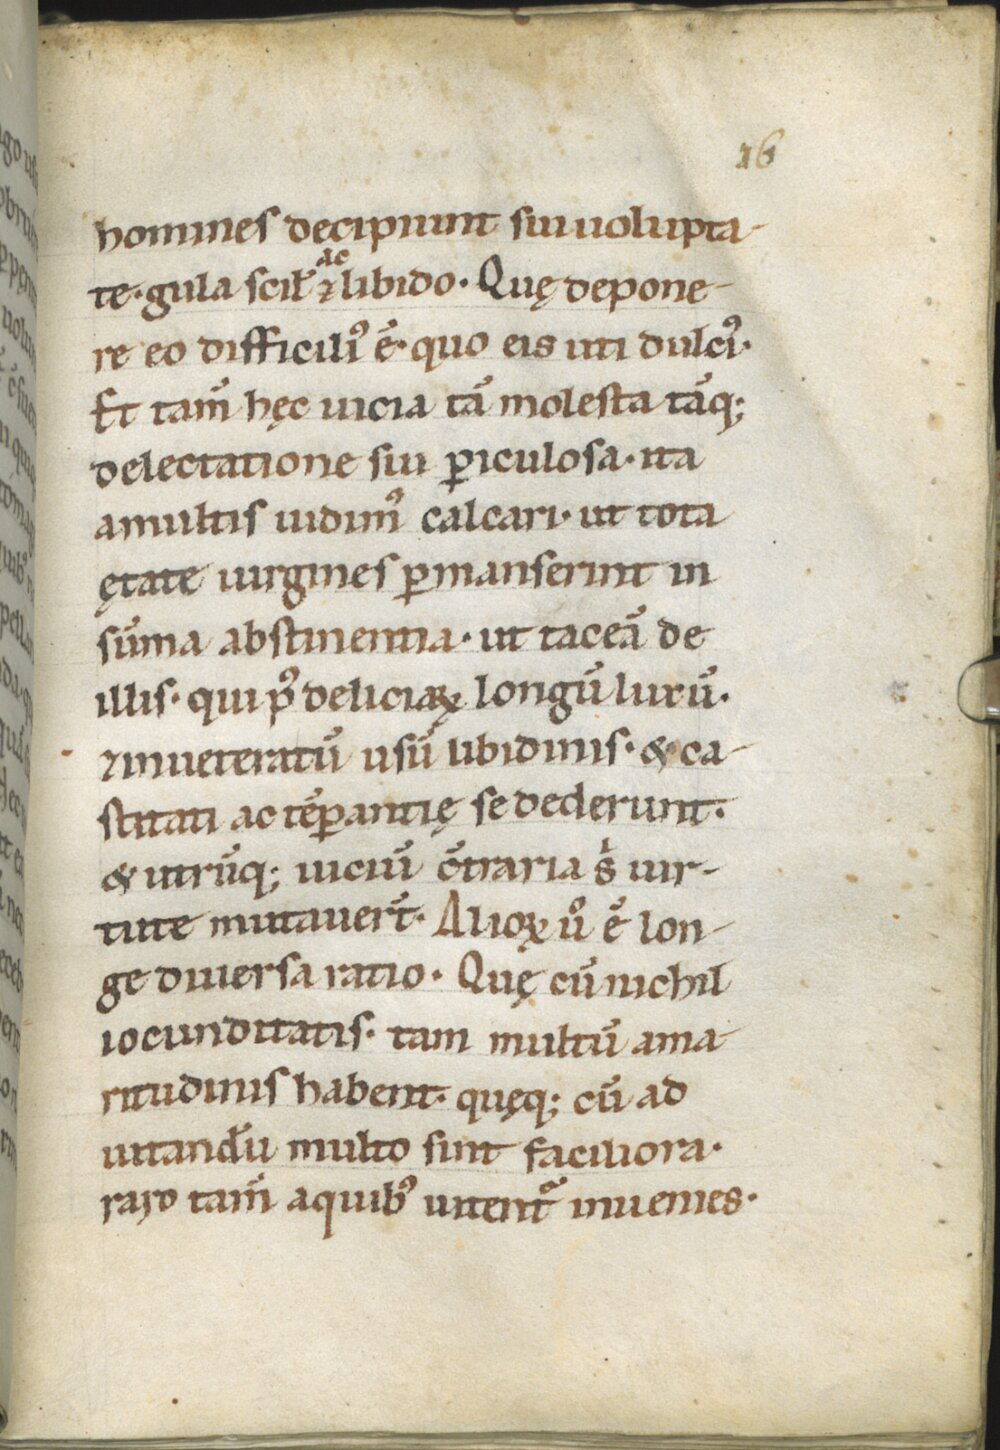 16
homines decipiunt sui uolupta-
te· gula scił ⁊ ac libido· Quę depone-
re eo difficiliꝰ ē· quo eis uti dulciꝰ·
Et tam̄ hęc uicia tā molesta tāq;
delectatione sui ꝑiculosa· ita
amultis uidimꝰ calcari· ut tota
ętate uirgines ꝑmanserint in
sūma abstinentia· ut taceā de
illis· qui pꝰ deliciaꝝ longū luxū·
⁊inueteratū usū libidinis· & ca-
stitati ac tēꝑantię se dederunt·
& utrūq; uiciū ōtraria s̍ uir-
tute mutauer̄t· Alioꝝ uͦ ē lon-
ge diuersa ratio· Quę cū nichil
iocunditatis· tam multū ama-
ritudinis habent· quęq; cū ad
uitandū multo sint faciliora·
raro tam̄ aquibꝰ uitent᷑ inuenies·